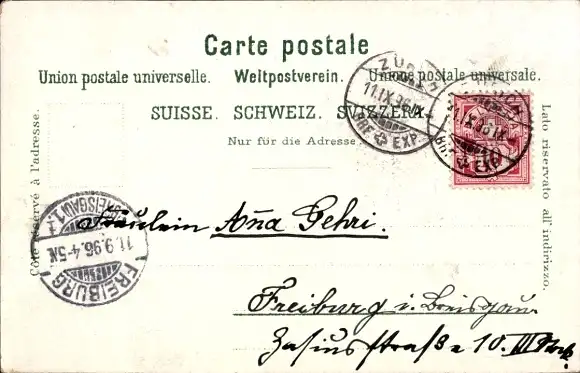 Carte postale
Union postale universelle. Weltpostverein. Unione postale universale.
SUISSE. SCHWEIZ. SVIZZERA.
Nur für die Adresse.
Côté réservé à l'adresse.
Lato riservato all' indirizzo.
ZÜRICH
11.IX.96.IX
BRF. EXP.
10
FREIBURG
11.9.96.4-5N.
Fräulein Aña Gehri.
Freiburg i. Breisgau
Zasiusstraße 10. III